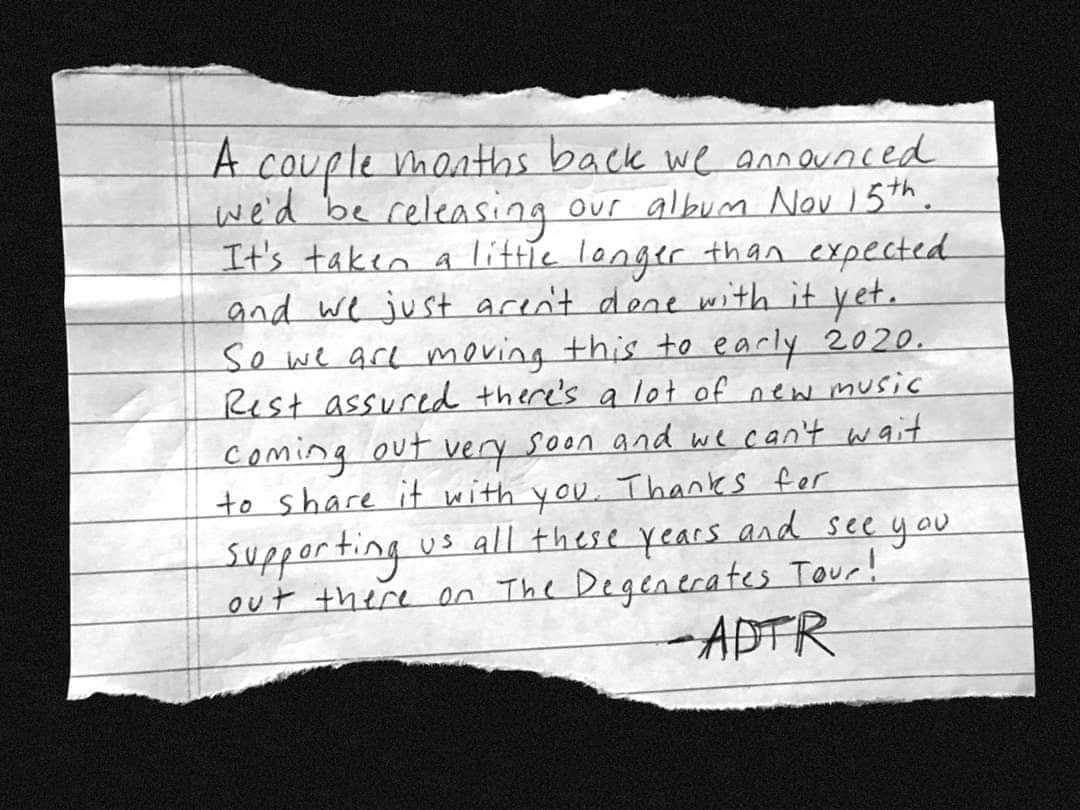 A couple months back we announced
we'd be releasing our album Nov 15th.
It's taken a little longer than expected
and we just aren't done with it yet.
So we are moving this to early 2020.
Rest assured there's a lot of new music
coming out very soon and we can't wait
to share it with you. Thanks for
supporting us all these years and see you
out there on The Degenerates Tour!
-ADTR